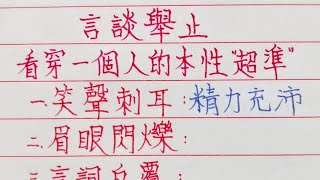 言談舉止
看穿一個人的本性"超準"
一.笑聲刺耳:精力充沛
二.眉眼閃爍:
三.言詞反覆: